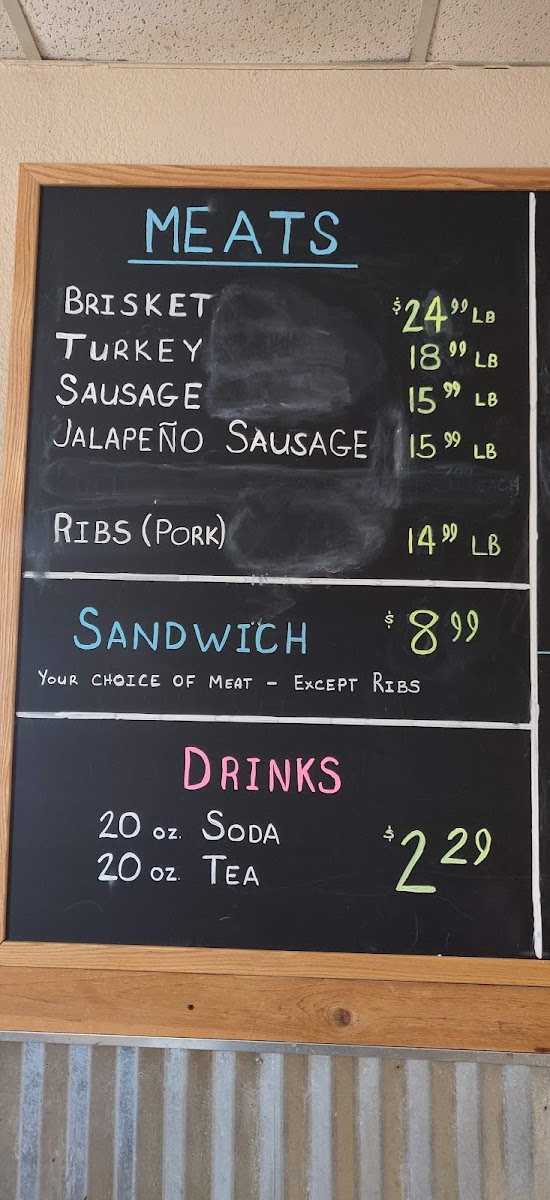 MEATS
BRISKET $24.99 LB
TURKEY 18.99 LB
SAUSAGE 15.99 LB
JALAPEÑO SAUSAGE 15.99 LB
EACH
RIBS (PORK) 14.99 LB
SANDWICH $8.99
YOUR CHOICE OF MEAT - EXCEPT RIBS
DRINKS
20 oz. SODA
20 oz. TEA
$2.29